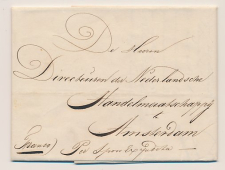 De Heeren
Directeuren der Nederlandsche
Handelmaatschappij
te
Amsterdam
Franco)
Per